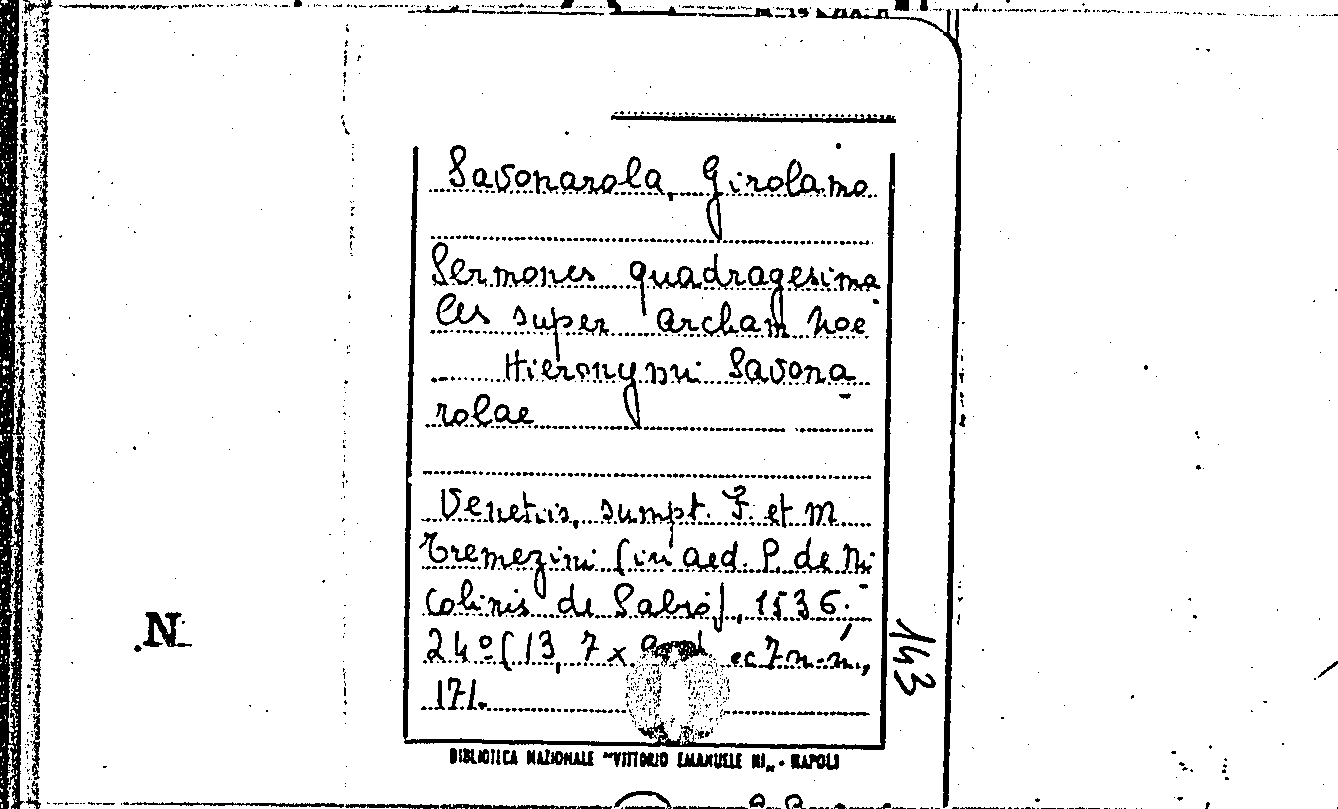 Savonarola, Girolamo
Sermones quadragesima
les super archam Noe
Hieronymi Savona
rolae
Venetiis, sumpt. F. et M
Tremezini (in aed. P. de Ni
colinis de Sabio), 1536.
24º (13,7 x cc 7 n.n.,
171.
143
N
BIBLIOTECA NAZIONALE "VITTORIO EMANUELE III" - NAPOLI